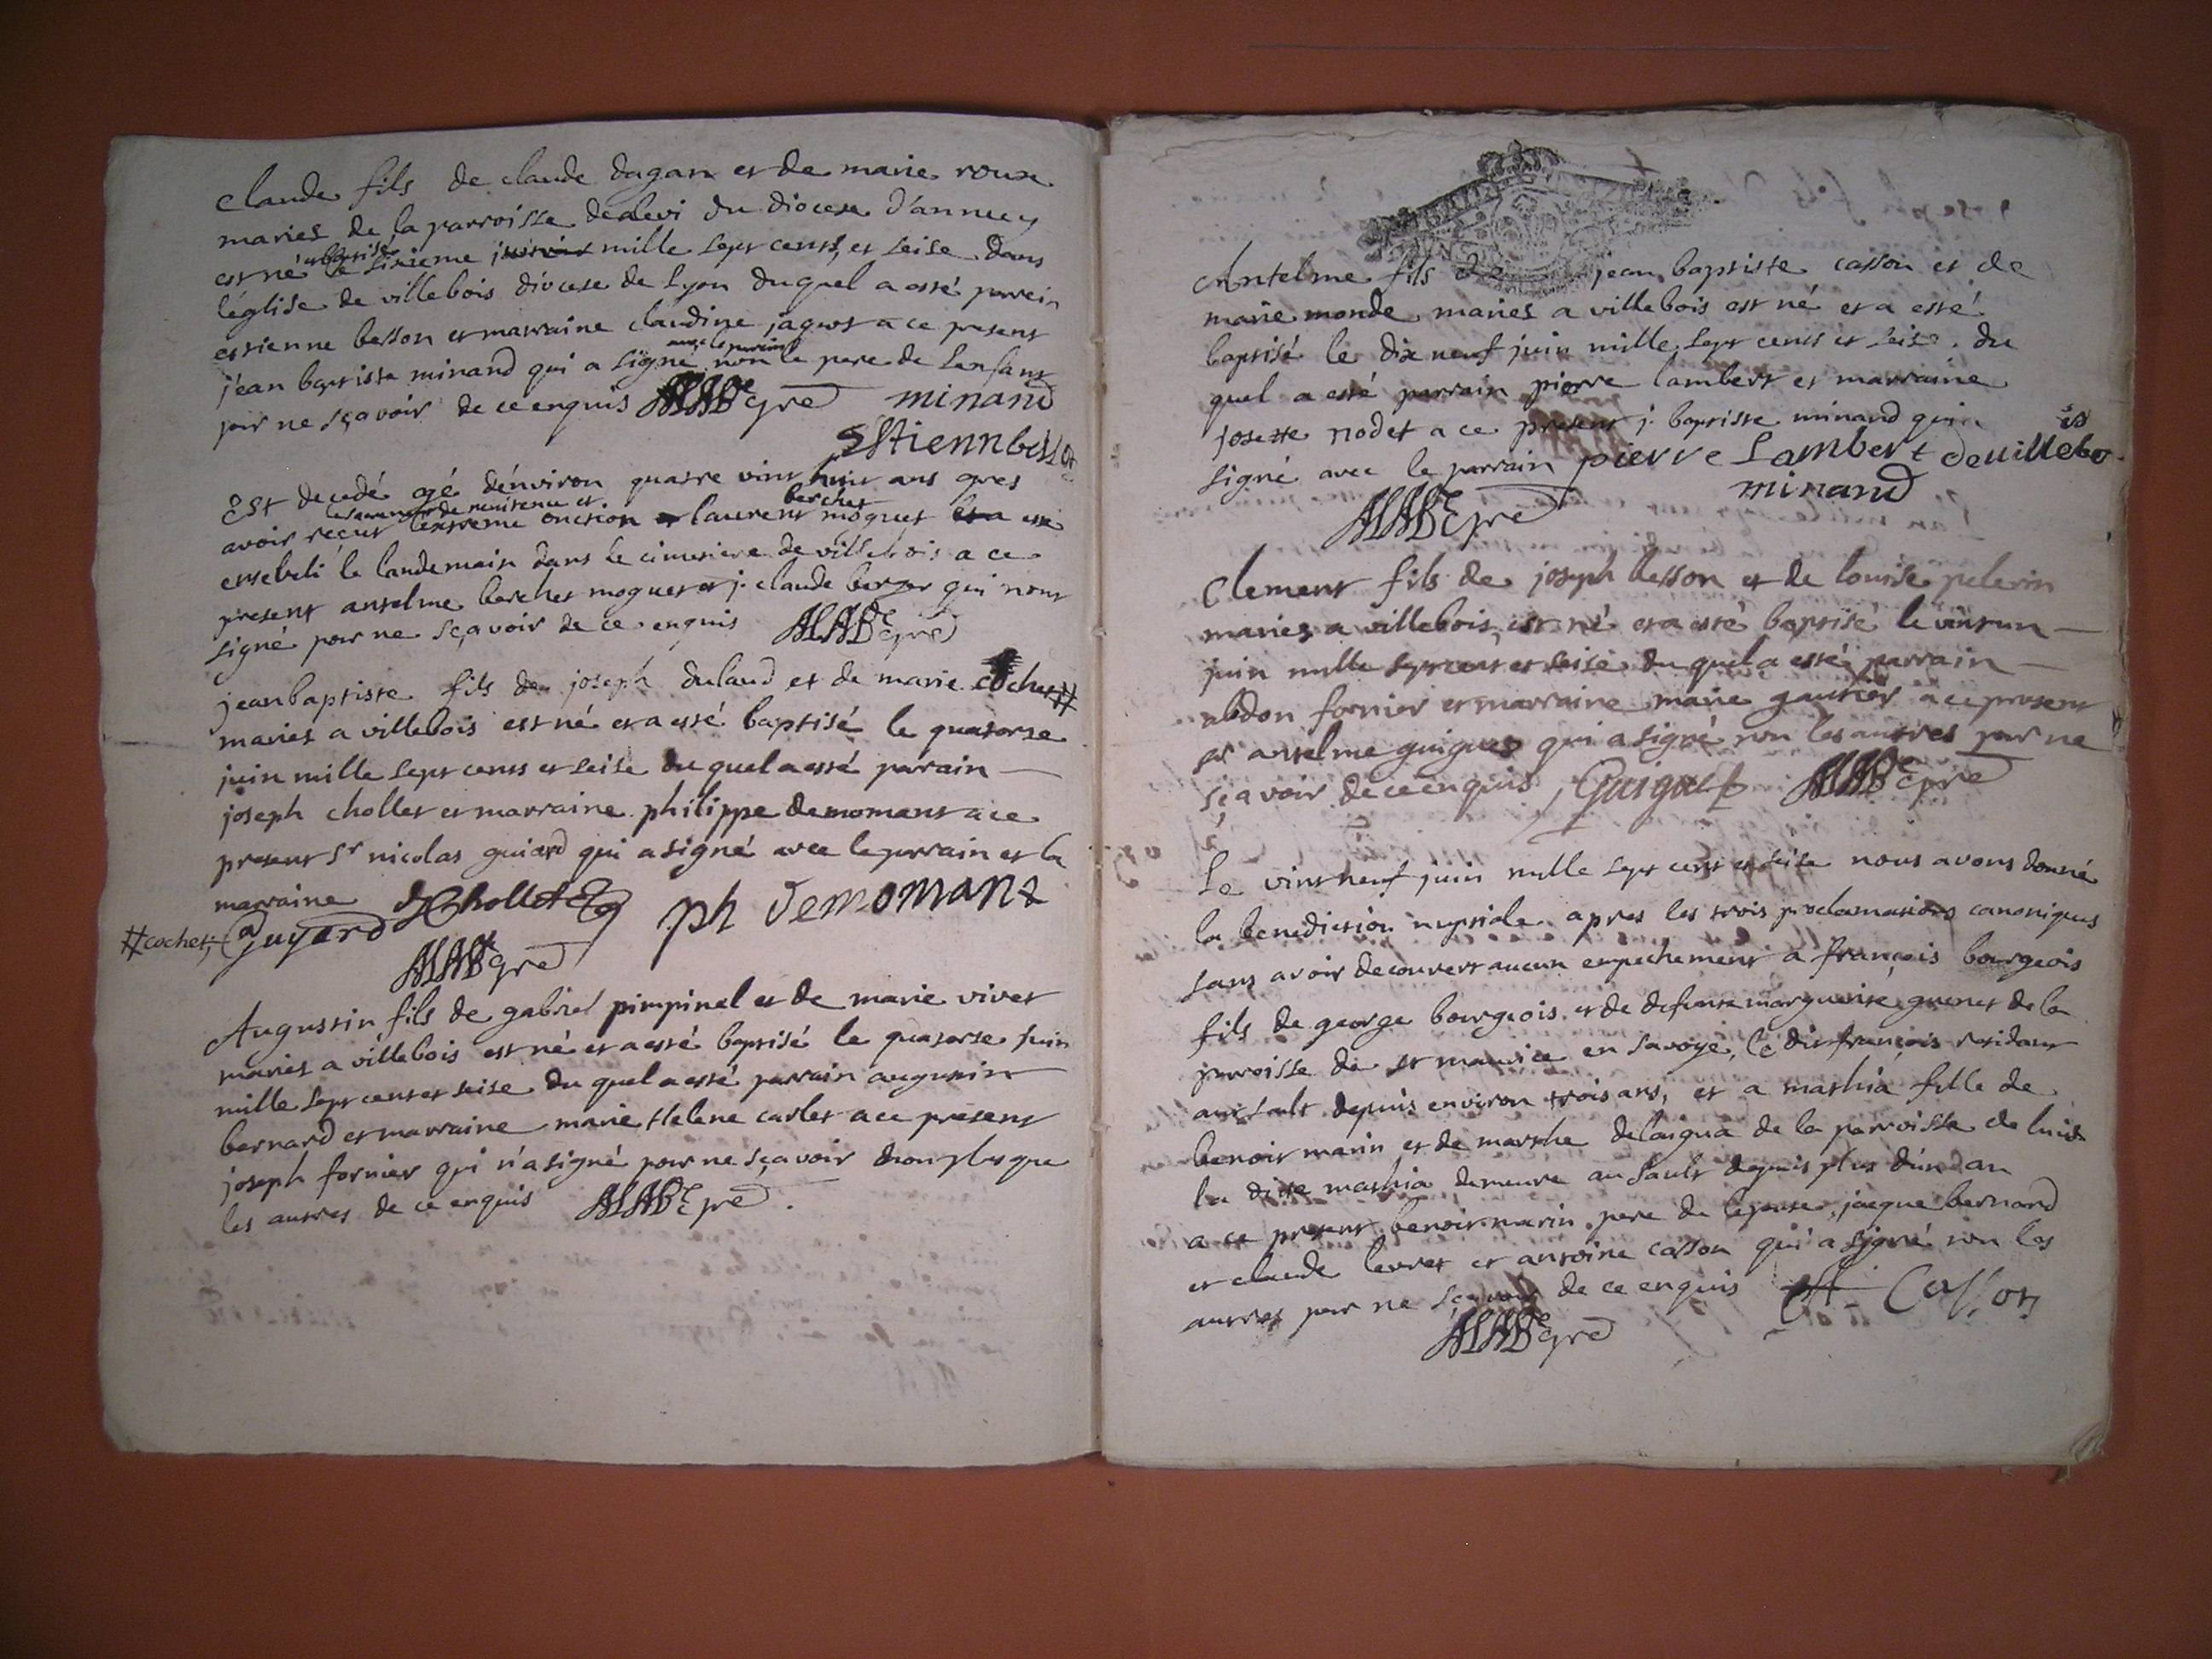 Claude fils de claude dagan et de marie roux
mariés de la parroisse dalevi du diocese d'annecy
est né et baptisé le sixieme mille sept cents, et seise dans
l'église de villebois diocese de Lyon duquel a esté parein
estienne besson et marraine claudine jaquet a ce present
jean baptiste minand qui a signé avec le parrain non le pere de lenfant
pour ne sçavoir de ce enquis pre minand
Estienn besson
Est decedé agé d'environ quatre vint huit ans apres
avoir reçut le sacrement de penitence et l'extreme onction laurent berchet moguet a esté
enseveli le landemain dans le cimetiere de villebois a ce
present antelme berchet moguet et j. claude berger qui n'ont
signé pour ne sçavoir de ce enquis pre
jean baptiste fils de joseph dulaud et de marie cochet #
mariés a villebois est né et a esté baptisé le quatorse
juin mille sept cents et seise du quel a esté parain
joseph chollet et marraine philippe demomant a ce
present Sr nicolas guiard qui a signé avec le parrain et la
marraine Chollet ph demomant
# cochet, Guyard
pre
Augustin fils de gabriel pimpinel et de marie vivet
mariés a villebois est né et a esté baptisé le quatorse juin
mille sept cents et seise du quel a esté parrain augustin
bernard et marraine marie Helene carlet a ce present
joseph fornier qui n'a signé pour ne sçavoir non plus que
les autres de ce enquis pre
Antelme fils de jean baptiste casson et de
marie monde mariés a villebois est né et a esté
baptisé le dix neuf juin mille sept cents et seise. du
quel a esté parrain pierre lambert et marraine
josette nodet a ce present j. baptiste minand qui a
signé avec le parrain pierre Lambert de uillebois
minand
pre
Clement fils de joseph besson et de louise pelerin
mariés a villebois est né et a esté baptisé le vint un
juin mille sept cents et seise du quel a esté parrain
abdon fornier et marraine marie gautier a ce present
sr antelme guiguet qui a signé non les autres pour ne
sçavoir de ce enquis Guiguet pre
Le vint neuf juin mille sept cent et seise nous avons donné
la benediction nuptiale apres les trois proclamations canoniques
sans avoir decouvert aucun empechement a françois bourgeois
fils de george bourgeois et de defunte marguerite guenet de la
parroisse de st maurice en savoye, le dit françois residant
au sault depuis environ trois ans, et a mathia fille de
benoit marin et de marthe delaigua de la parroisse de
la dite mathia demeure au sault depuis plus d'un an
a ce present benoit marin pere de lepouse, jaque bernard
et claude levret et antoine casson qui a signé non les
autres pour ne sçavoir de ce enquis Casson
pre